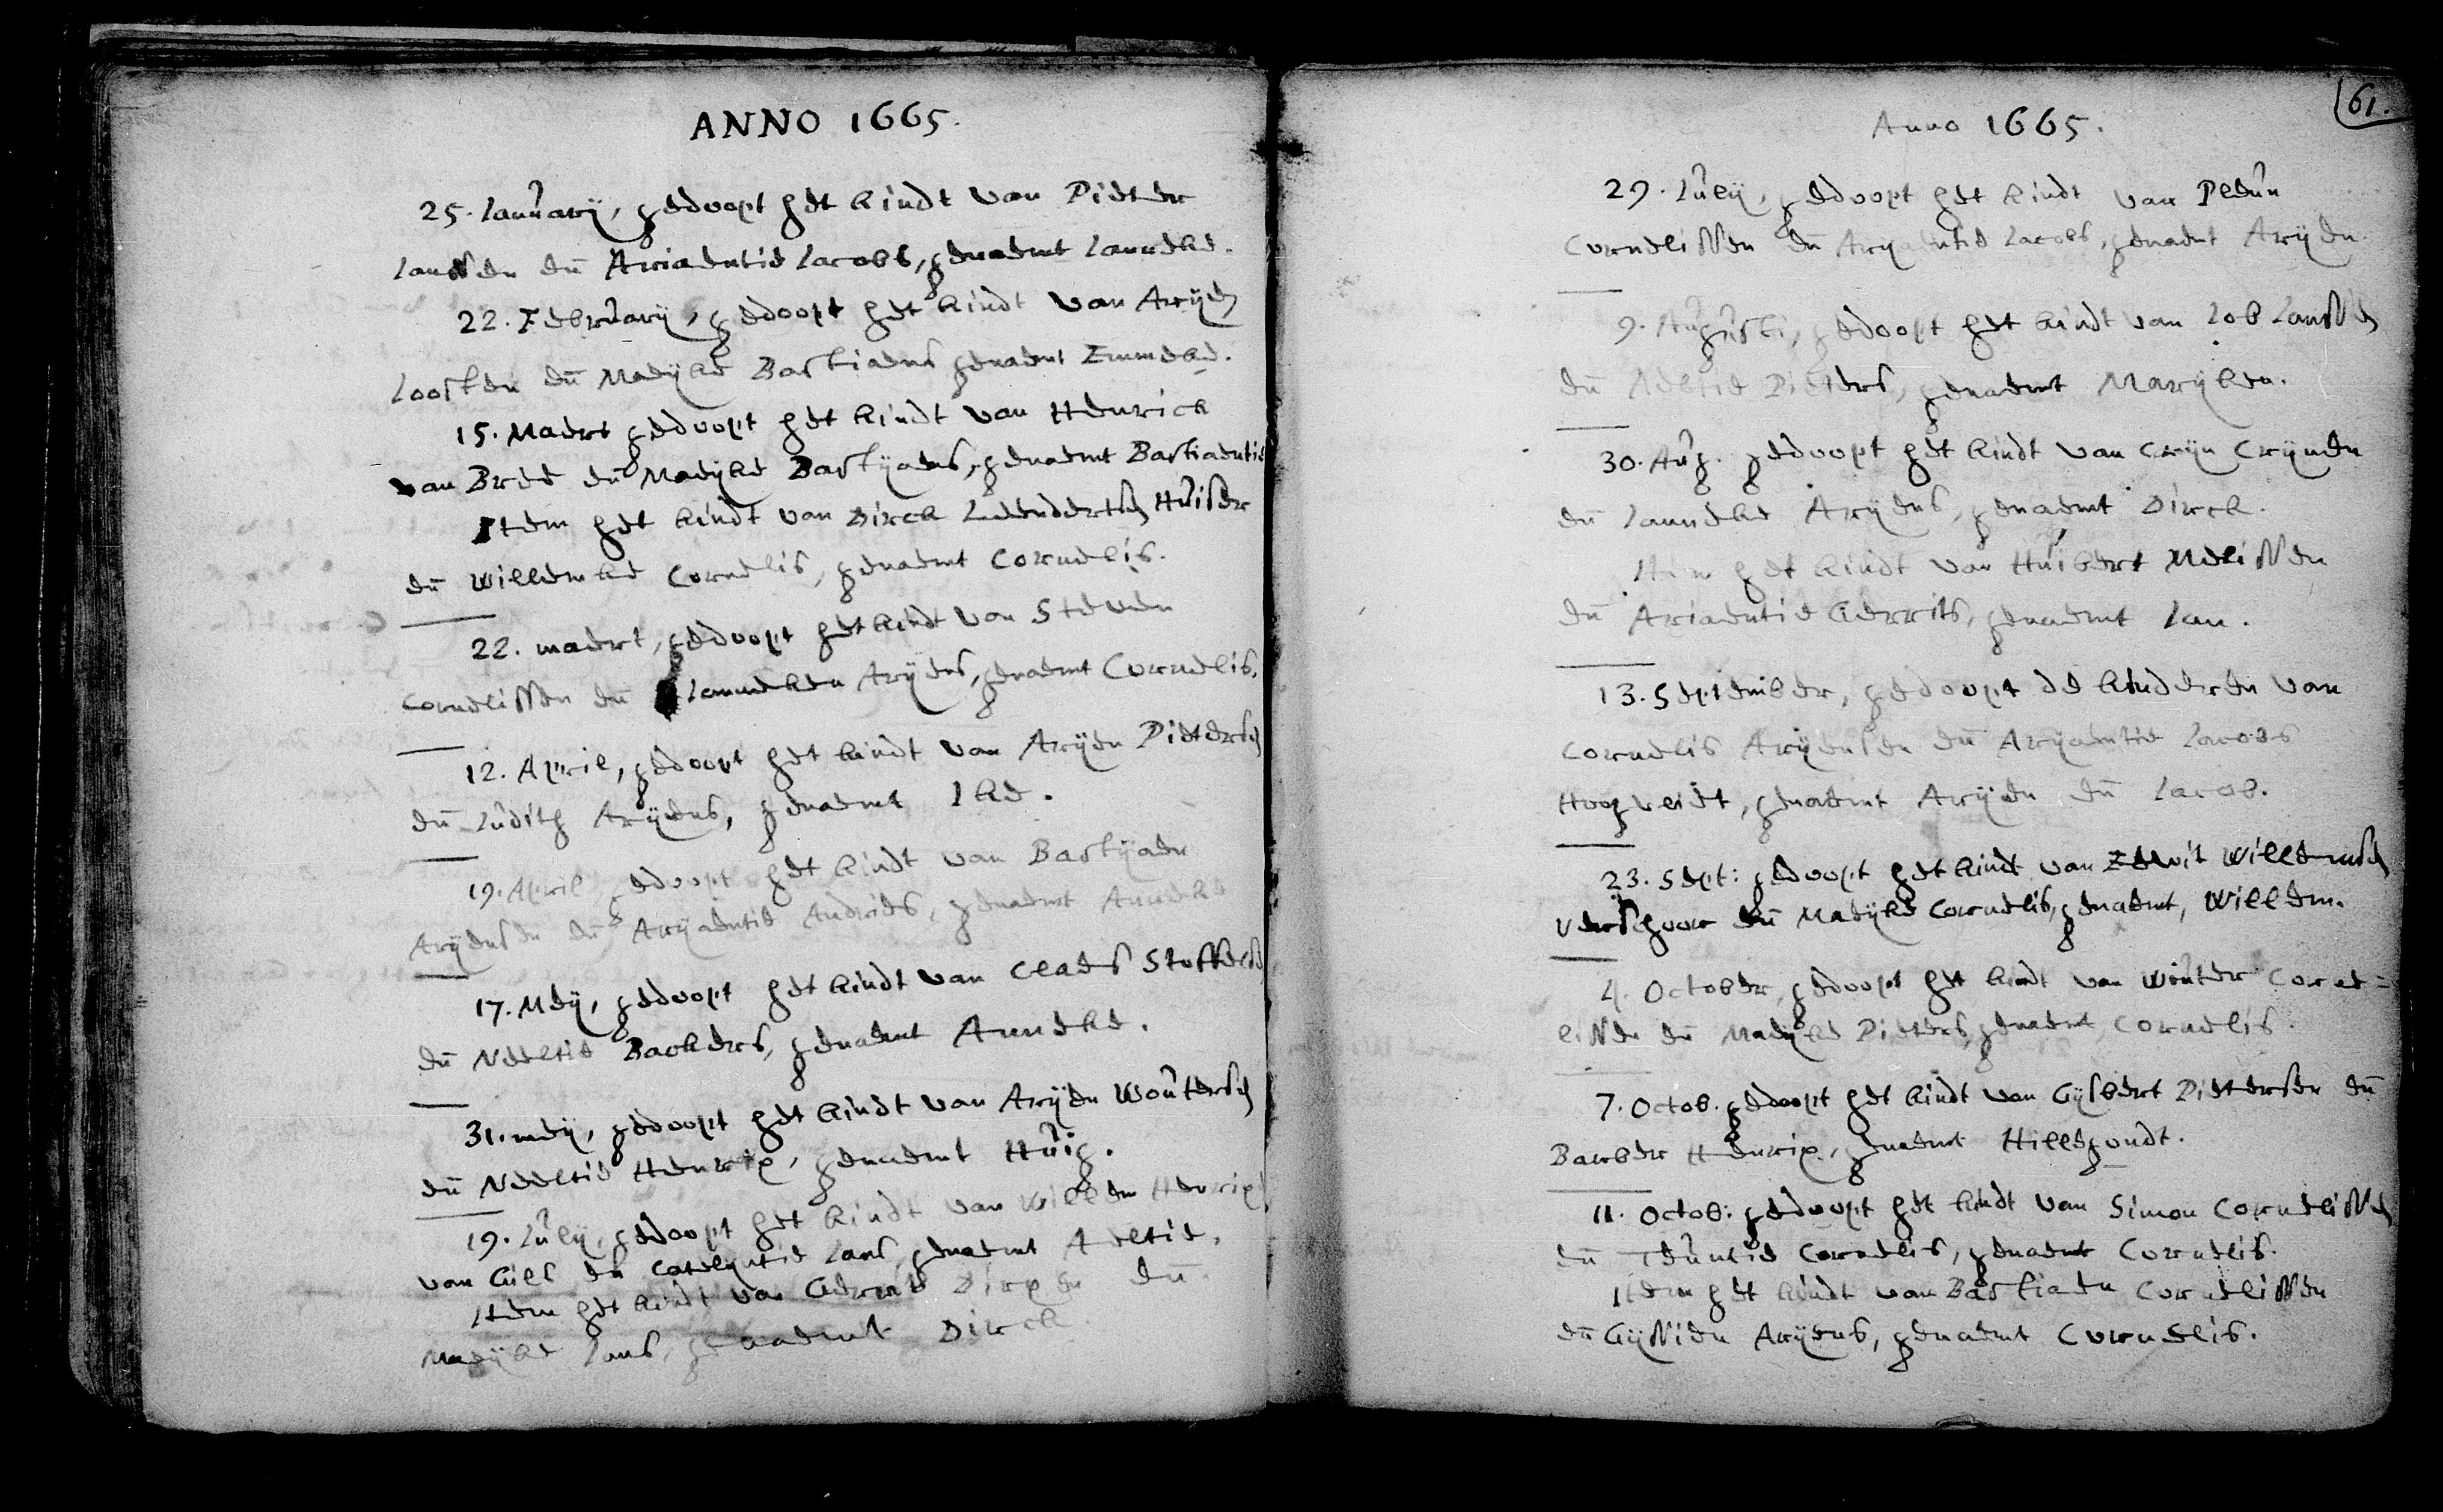 ANNO 1665.
25. January, gedoopt het kindt van Pieter
Janssen eñ Ariaentie Jacobs, genaemt Janneke.
22. February, gedoopt het kindt van Aryen
Joosten eñ Maeyke Bastiaens genaemt Emmeke.
15. Maert gedoopt het kindt van Henrick
van Bree eñ Maeyke Bastyaens, genaemt Bastiaentie
Item het kindt van Dirck Leendertsen Huiser
eñ Willemke Cornelis, genaemt Cornelis.
22. maert, gedoopt het kindt van Steven
Cornelissen eñ Janneken Aryens, genaemt Cornelis.
12. April, gedoopt het kindt van Aryen Pietersen
eñ Judith Aryens, genaemt Ike.
19. April gedoopt het kindt van Bastyaen
Aryensen eñ Aryaentie Andries, genaemt Anneke
17. Mey, gedoopt het kindt van Claes Stoffels
eñ Neeltie Backers, genaemt Anneke.
31. mey, gedoopt het kindt van Aryen Woutersen
eñ Neeltie Henrix, genaemt Huig.
19. July, gedoopt het kindt van Willem Henrix
van Gils en Catelyntie Jans, genaemt Aeltie.
Item het kindt van Gerrit Dirxen eñ
Maeyke Jans, genaemt Dirck
61.
Anno 1665.
29. July, gedoopt het kindt van Pleun
Cornelissen eñ Aryaentie Jacobs, genaemt Aryen.
9. Augusti, gedoopt het kindt van Job Janssen
eñ Neeltie Pieters, genaemt Maryken.
30. Aug. gedoopt het kindt van Cryn Crynen
eñ Janneke Aryens, genaemt Dirck.
Item het kindt van Huibert Melissen
eñ Ariaentie Gerrits, genaemt Jan.
13. September, gedoopt de kinderen van
Cornelis Aryensen eñ Aryaentie Jacobs
Hoogveidt, genaemt Aryen eñ Jacob.
23. Sept: gedoopt het kindt van Teewis Willemsen
Verschoor eñ Maeyke Cornelis, genaemt, Willem.
4. October, gedoopt het kindt van Wouter Corne=
lissen eñ Maeyke Pieters, genaemt, Cornelis.
7. Octob. gedoopt het kindt van Gysbert Pietersen eñ
Barber Henrix, genaemt Hillegondt.
11. Octob: gedoopt het kindt van Simon Cornelissen
eñ Teuntie Cornelis, genaemt Cornelis.
Item het kindt van Bastiaen Cornelissen
eñ Gyssien Aryens, genaemt Cornelis.